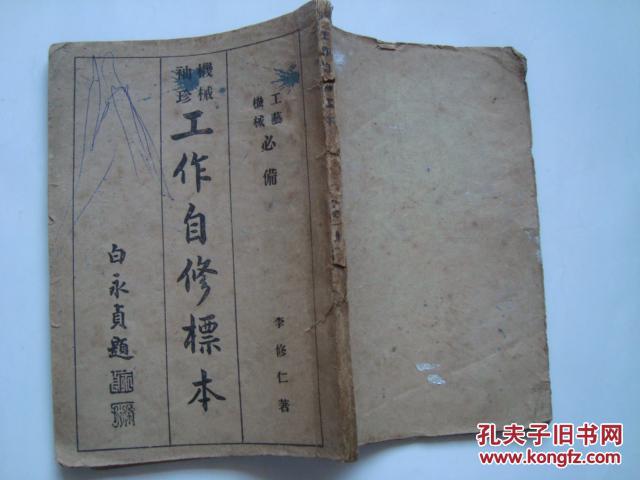 工藝
機械
必備
李修仁著
機械
袖珍
工作自修標本
白永貞題
孔夫子旧书网
www.kongfz.com